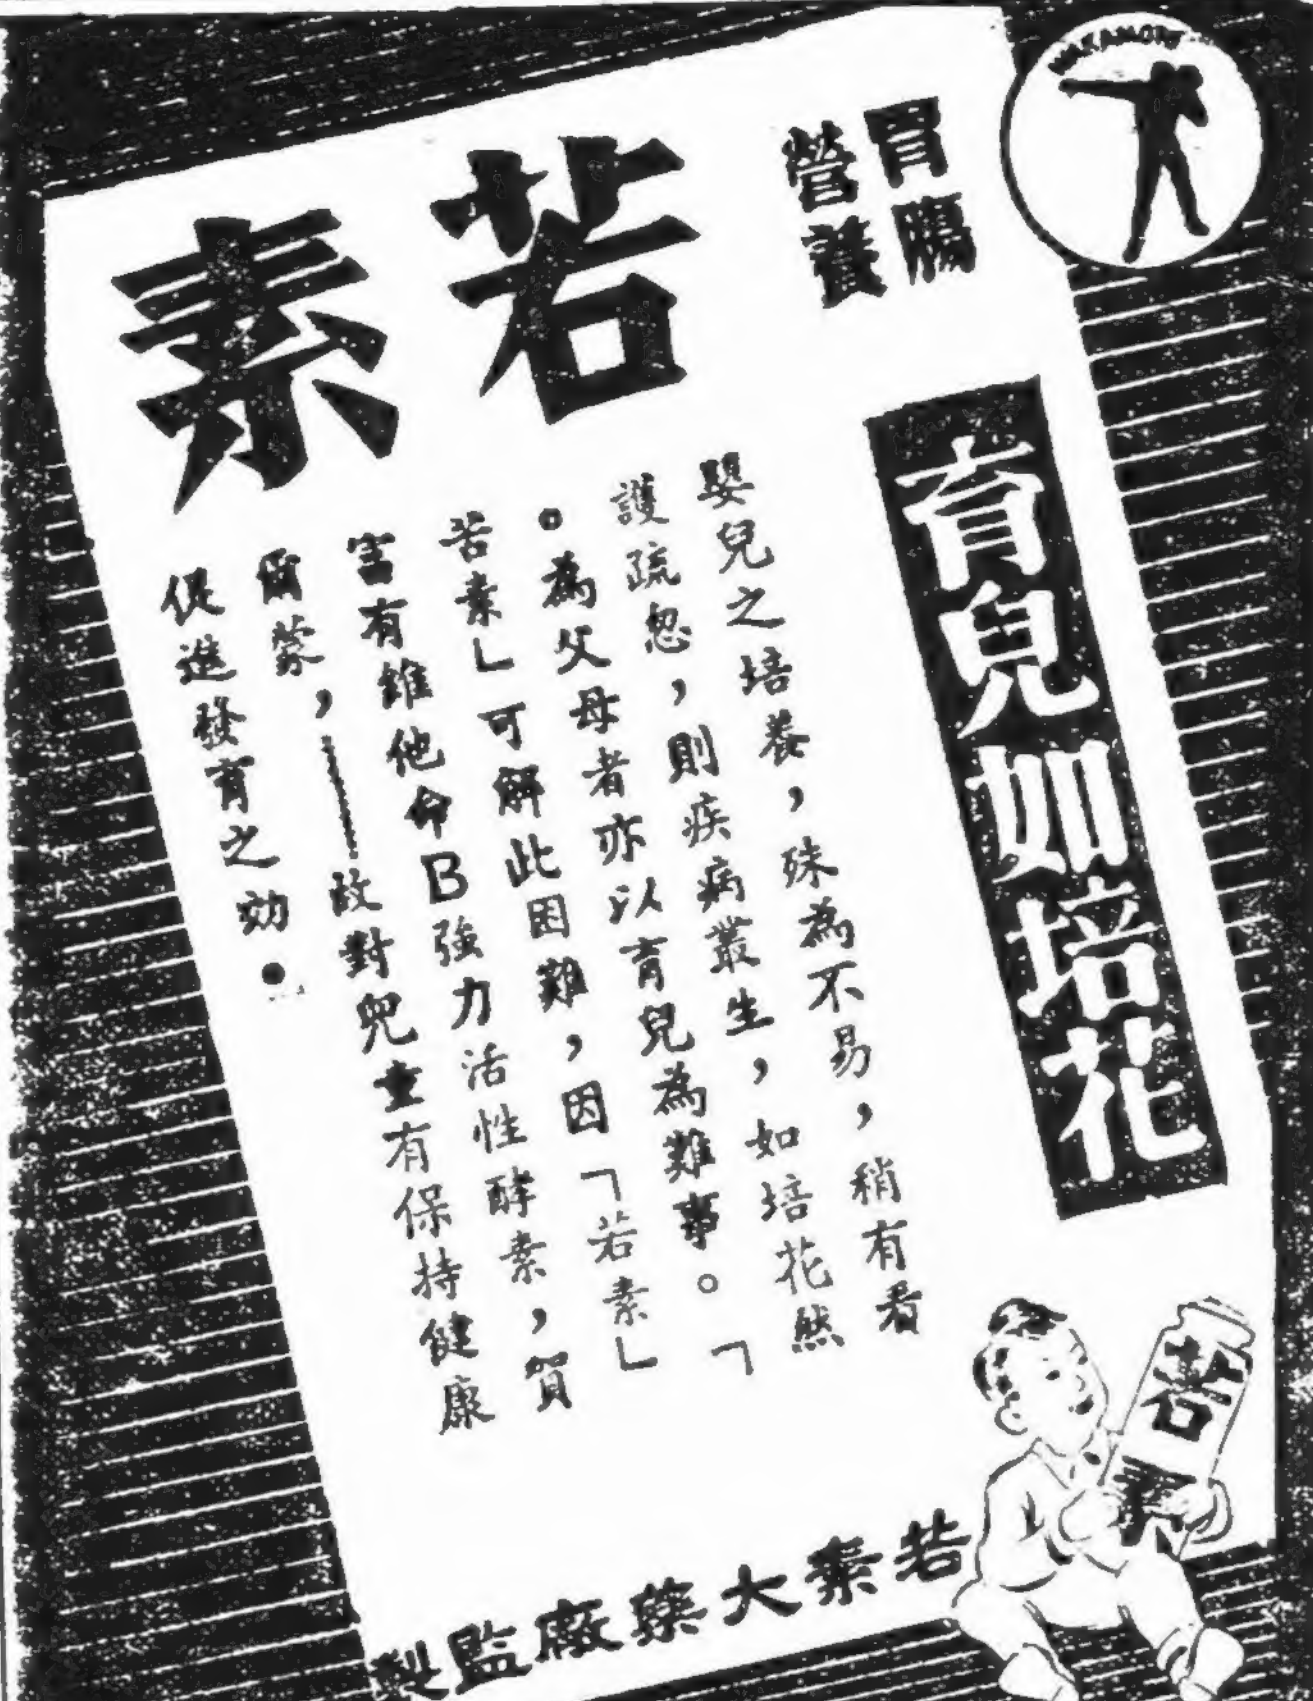 胃腸
營養
若素
育兒如培花
嬰兒之培養，殊為不易，稍有看
護疏忽，則疾病叢生，如培花然
。為父母者亦以育兒為難事。「
若素」可解此困難，因「若素」
富有維他命B強力活性酵素，賀
爾蒙，——故對兒童有保持健康
促進發育之効。
若素
若素大藥廠監製